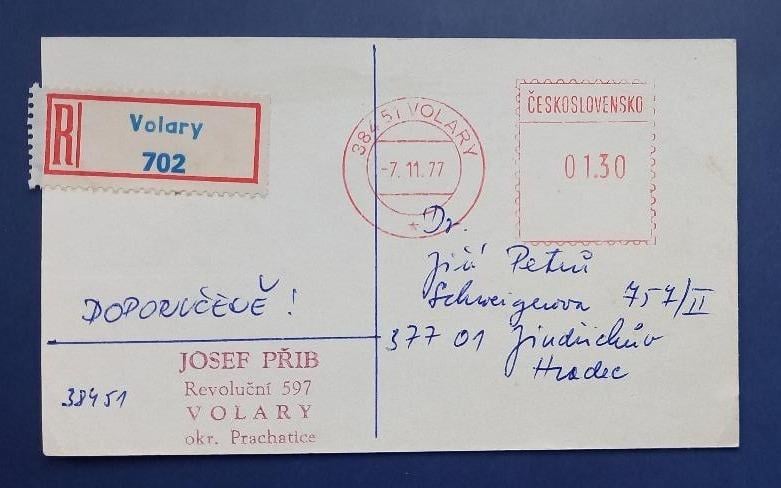 R
Volary
702
38451 VOLARY
-7.11.77
ČESKOSLOVENSKO
01.30
Dr.
Jiří Petrů
Schweigerova 757/II
377 01 Jindřichův
Hradec
DOPORUČENĚ!
JOSEF PŘIB
Revoluční 597
VOLARY
okr. Prachatice
38451